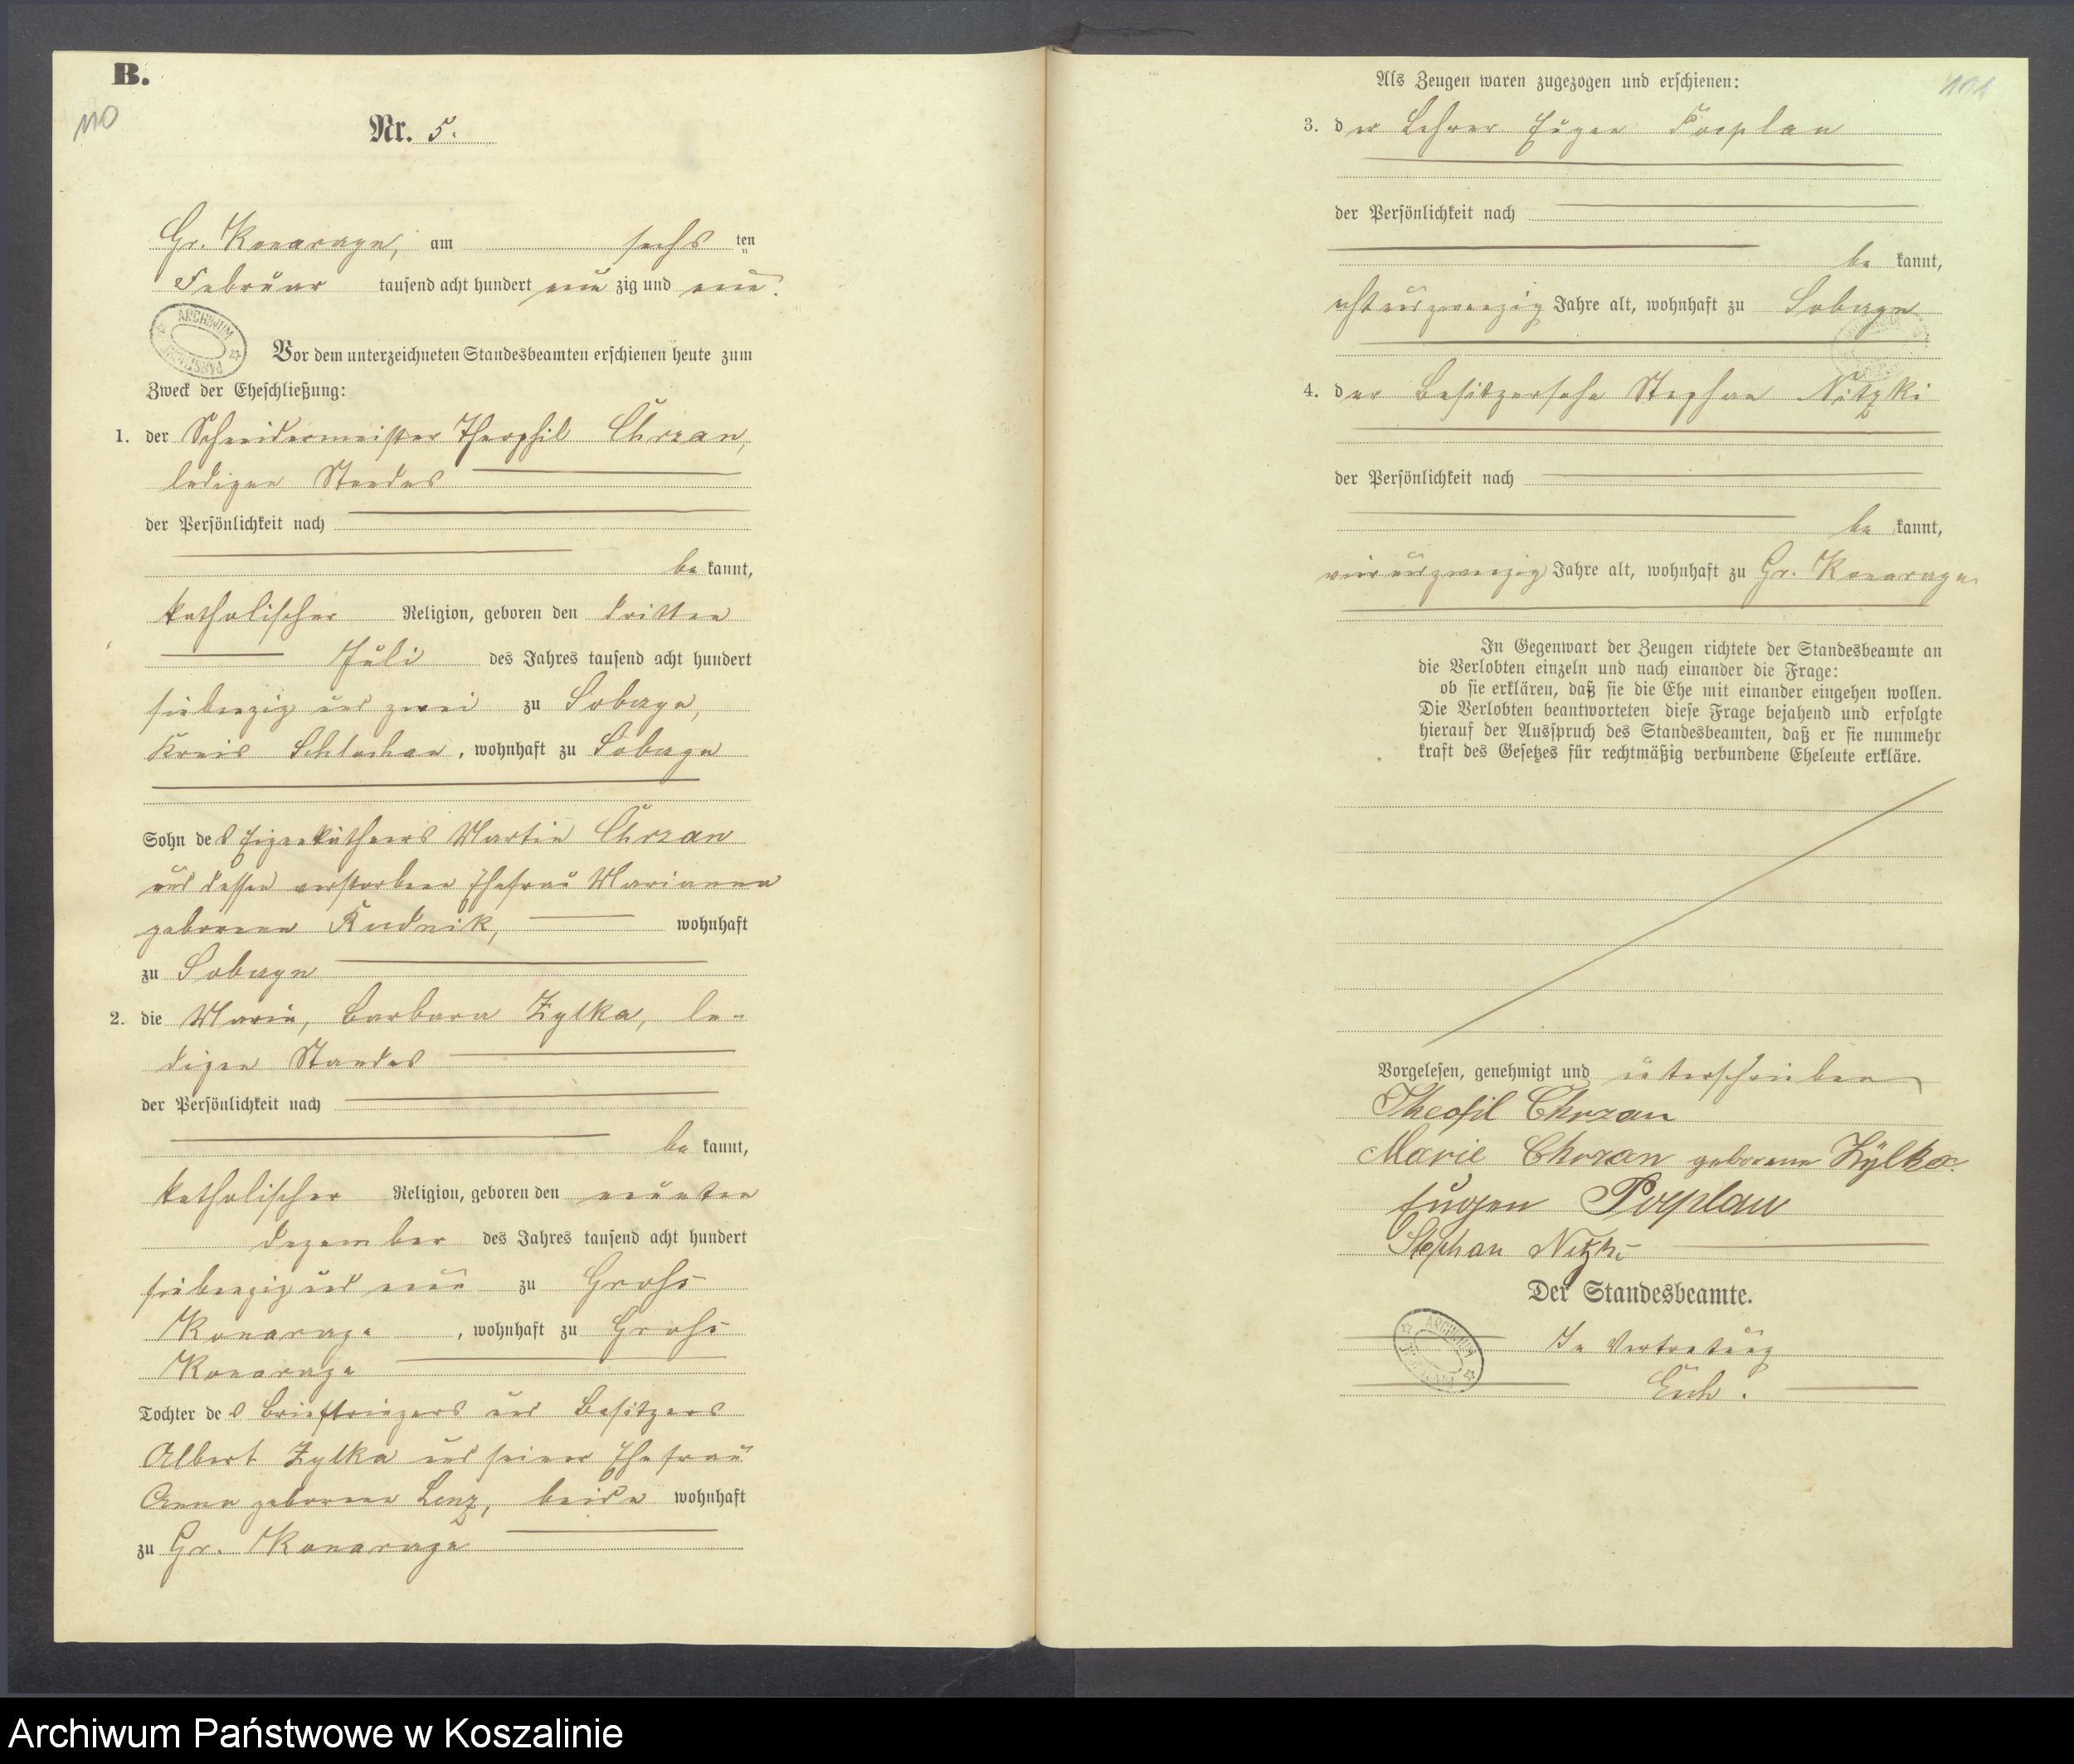 B.
110
Nr. 5.
Gr. Konarzyn, am sechs ten
Februar tausend acht hundert neun zig und neun.
ARCHIWUM
Vor dem unterzeichneten Standesbeamten erschienen heute zum
Zweck der Eheschließung:
1. der Schneidermeister Theophil Chrzan,
ledigen Standes
der Persönlichkeit nach
be kannt,
katholischer Religion, geboren den dritten
Juli des Jahres tausend acht hundert
siebenzig und zwei zu Sobczyn,
Kreis Schlochau, wohnhaft zu Sobczyn
Sohn des Eigenkäthners Martin Chrzan
und dessen verstorbene Ehefrau Marianna
geborene Rudnik, wohnhaft
zu Sobczyn
2. die Marie, Barbara Zylka, le-
digen Standes
der Persönlichkeit nach
be kannt,
katholischer Religion, geboren den neunten
Dezember des Jahres tausend acht hundert
siebenzig und neun zu Groß
Konarzyn, wohnhaft zu Groß
Konarzyn
Tochter des Briefträgers und Besitzers
Albert Zylka und seiner Ehefrau
Anna geborene Lenz, beide wohnhaft
zu Gr. Konarzyn
101
Als Zeugen waren zugezogen und erschienen:
3. der Lehrer Eugen Poeplau
der Persönlichkeit nach
be kannt,
acht und zwanzig Jahre alt, wohnhaft zu Sobczyn
4. der Besitzersohn Stephan Nitzki
der Persönlichkeit nach
be kannt,
vier und zwanzig Jahre alt, wohnhaft zu Gr. Konarzyn
In Gegenwart der Zeugen richtete der Standesbeamte an
die Verlobten einzeln und nach einander die Frage:
ob sie erklären, daß sie die Ehe mit einander eingehen wollen.
Die Verlobten beantworteten diese Frage bejahend und erfolgte
hierauf der Ausspruch des Standesbeamten, daß er sie nunmehr
kraft des Gesetzes für rechtmäßig verbundene Eheleute erkläre.
Vorgelesen, genehmigt und unterschrieben
Theofil Chrzan
Marie Chrzan geborene Zÿlka.
Eugen Poeplau
Stephan Nitzki
Der Standesbeamte.
ARCHIWUM
In Vertretung